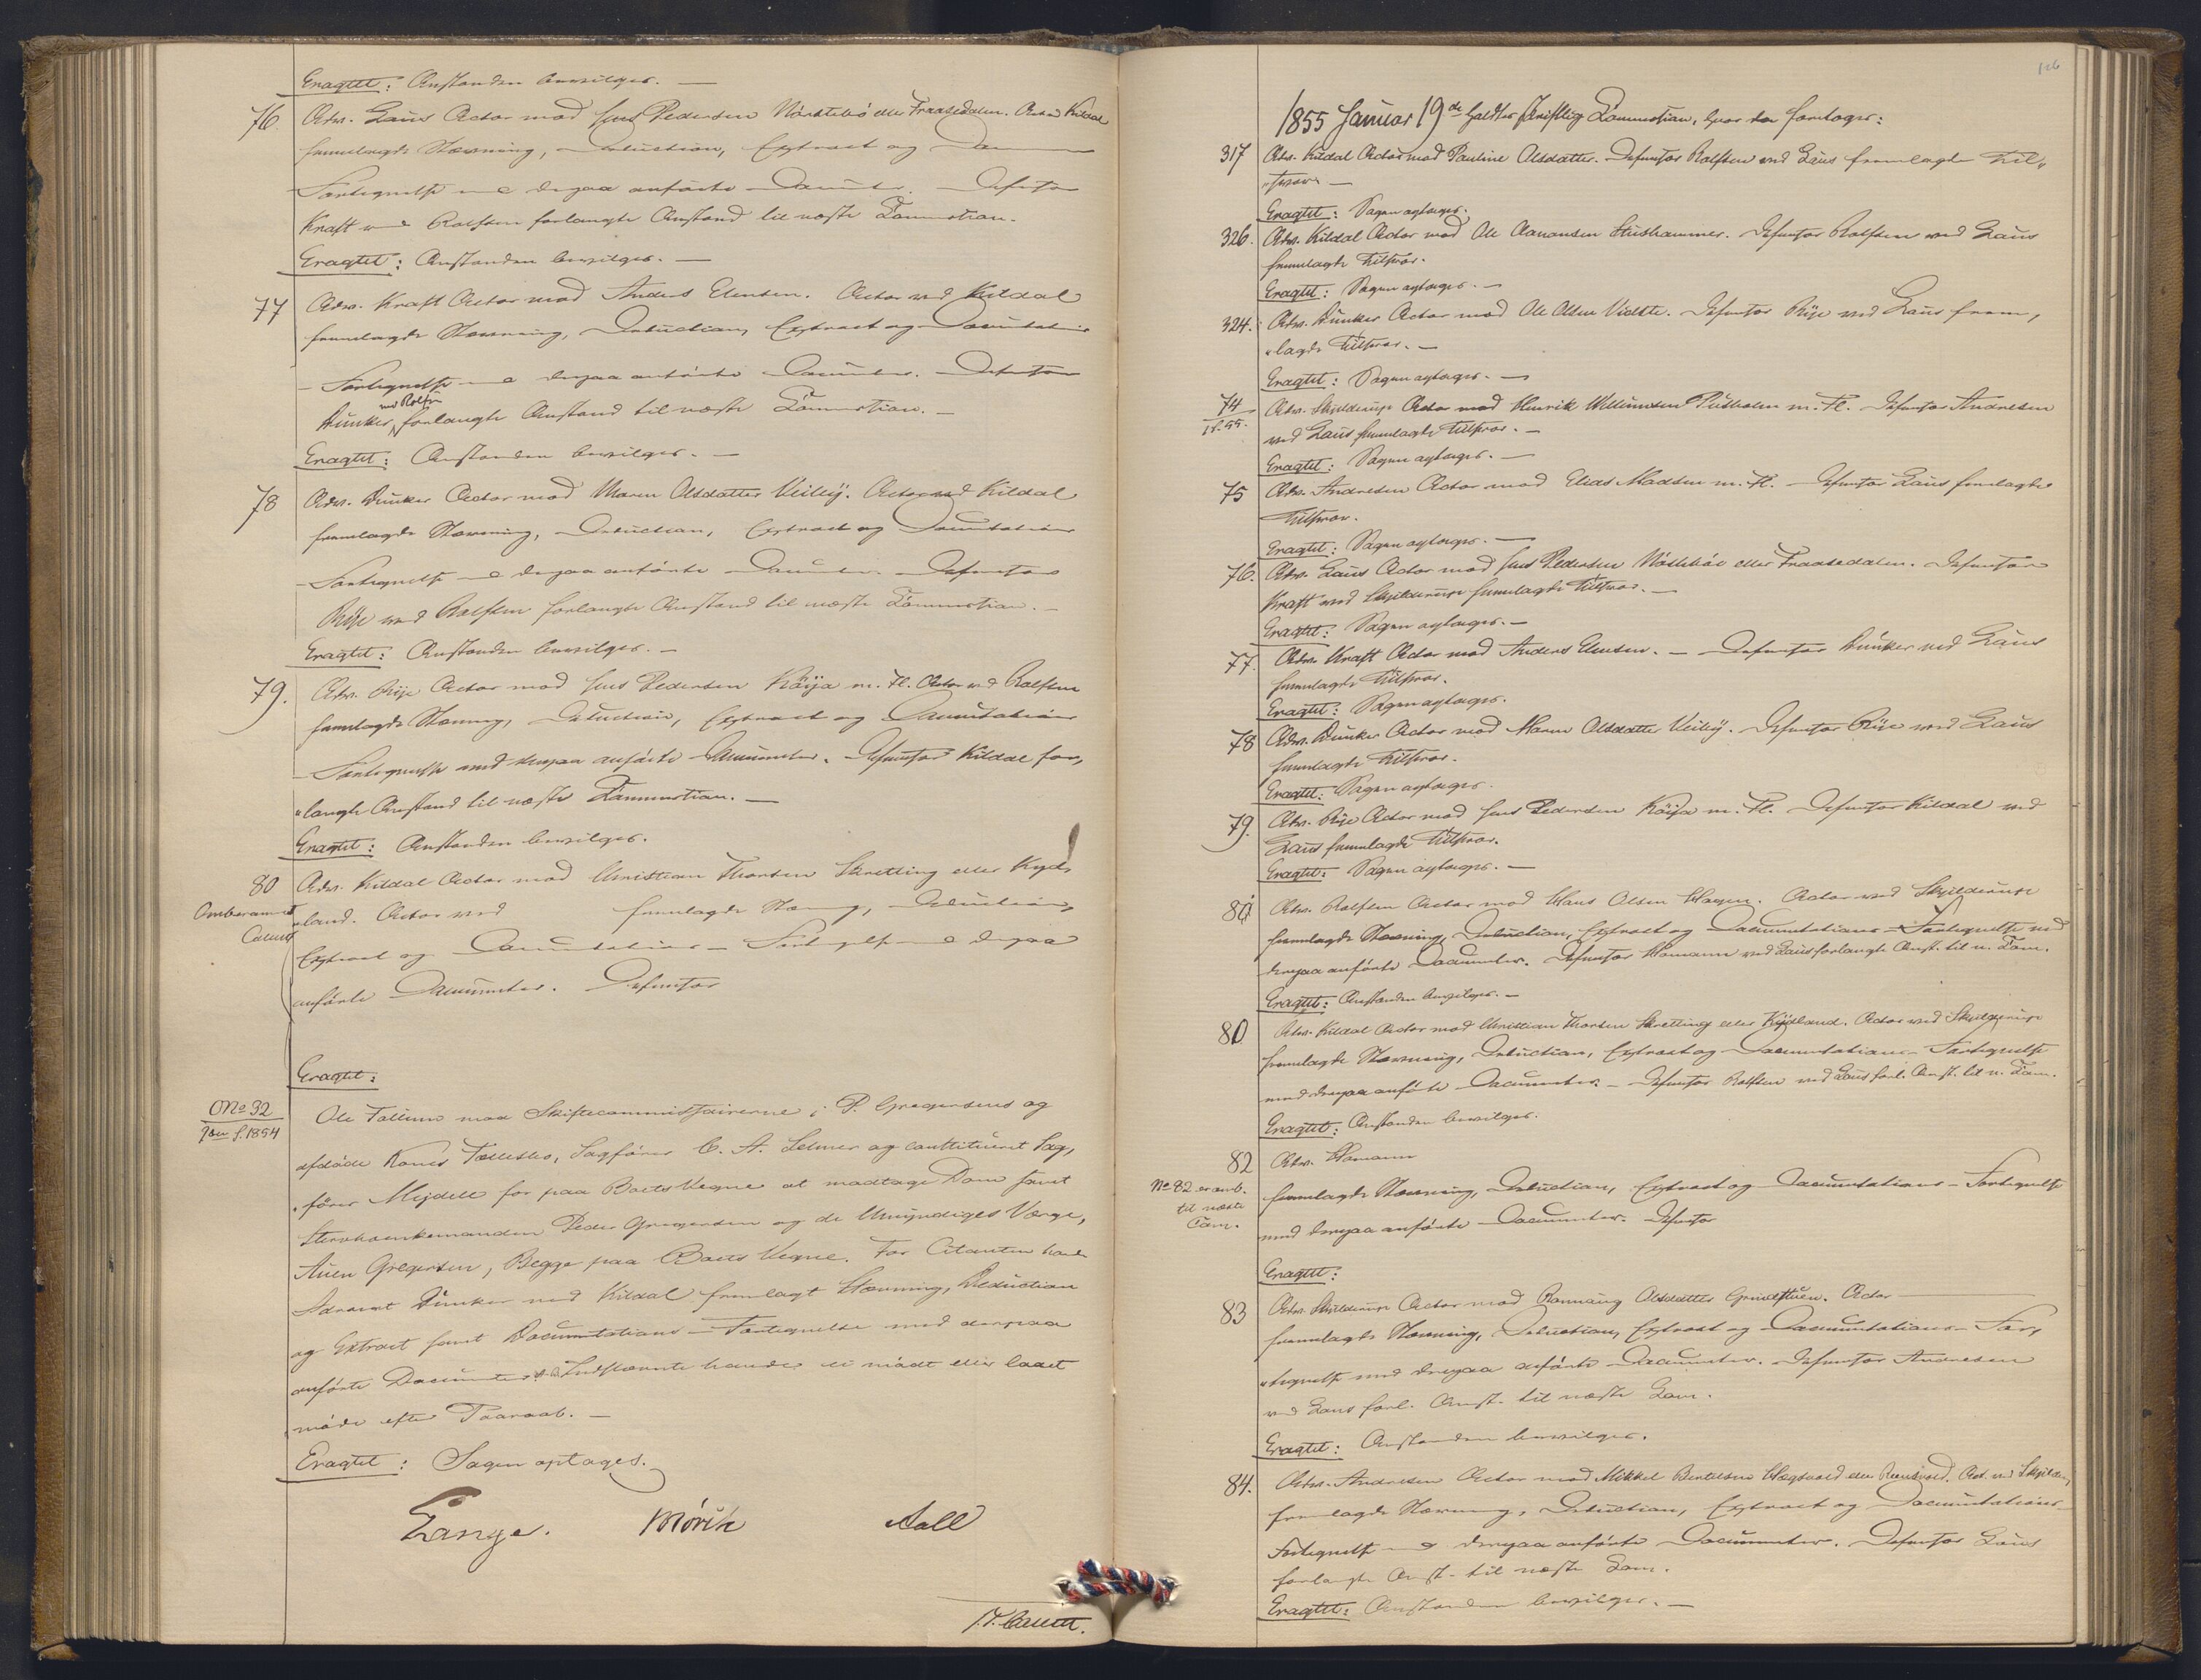 Eragtet: Anstanden bevilges. —
76 Adv. Haus Actor mod Jens Pedersen eller Fraasedalen. Actor Kildal
fremlagde Stævning, Deduction, Extract og
Fortegnelse med derpaa anførte Documenter. Defensor
Kraft ved Rolfsen forlangte Anstand til næste
Eragtet: Anstanden bevilges. —
77 Adv. Kraft Actor mod Anders Elensen. Actor ved Kildal
fremlagde Stævning, Deduction, Extract og Documentations
– Fortegnelse med derpaa anførte Documenter. Defensor
Dunker ved Rolfsen forlangte Anstand til næste —
Eragtet: Anstanden bevilges. —
78 Adv. Dunker Actor mod Maren Olsdatter Veiby. Actor ved Kildal
fremlagde Stævning, Deduction, Extract og Documentations
– Fortegnelse med derpaa anførte Documenter. Defensor
Rije ved Rolfsen forlangte Anstand til næste —
Eragtet: Anstanden bevilges. —
79. Adv. Rije Actor mod Jens Pedersen Röija m. Fl. Actor ved Rolfsen
fremlagde Stævning, Deduction, Extract og Documentations
– Fortegnelse med derpaa anførte Documenter. Defensor Kildal for,
„langte Anstand til næste —
Eragtet: Anstanden bevilges.
80 Adv. Kildal Actor mod Christian Thorsen Skretting eller Kyd,
Omberammet
„land. Actor ved fremlagde Stævning, Deduction,
Extract og Documentations – Fortegnelse med derpaa
anførte Documenter. Defensor
Eragtet:
No 32 Ole Tallum mod Skiftecommissairerne i P. Gregersens og
f. 1854
afdøde Kones Fællesbo, Sagfører C. A. Selmer og constitueret Sag,
„fører Mejdell for paa Boets Vegne at modtage Dom samt
Stervboenkemanden Peder Gregersen og de Umyndiges Værge,
Auen Gregersen, Begge paa Boets Vegne. For Citanten havde
Advocat Dunker ved Kildal fremlagt Stævning, Deduction
og Extract samt Documentations – Fortegnelse med derpaa
anførte Documenter. Indstævnte havde ei mødt eller ladet
møde efter Paaraab. —
Eragtet: Sagen optages.
Lange. Mørch Aall
1855 Januar 19de holdtes skriftlig Session, hvor da foretoges:
317 Adv. Kildal Actor mod Pauline Olsdatter. Defensor Rolfsen ved Haus fremlagde Til,
„svar —
Eragtet: Sagen optages.
326. Adv. Kildal Actor mod Ole Aanonsen Stushammer. Defensor Rolfsen ved Haus
fremlagde Tilsvar.
Eragtet: Sagen optages. —
324. Adv. Dunker Actor mod Ole Olsen Vidste. Defensor Rije ved Haus frem,
„lagde Tilsvar. —
Eragtet: Sagen optages. —
74 Adv. Skjelderup Actor mod Henrik Willumsen Pusholen m. Fl. Defensor Andresen
ved Haus fremlagde Tilsvar. —
Eragtet: Sagen optages. —
75 Adv. Andresen Actor mod Elias Madsen m. Fl. — Defensor Haus fremlagde
Tilsvar.
Eragtet: Sagen optages. —
76. Adv. Haus Actor mod Jens Pedersen eller Fraasedalen. Defensor
Kraft ved Skjelderup fremlagde Tilsvar. —
Eragtet: Sagen optages. —
77. Adv. Kraft Actor mod Anders Elensen. — Defensor Dunker ved Haus
fremlagde Tilsvar.
Eragtet: Sagen optages.
78 Adv. Dunker Actor mod Maren Olsdatter Veiby. Defensor Rije ved Haus
fremlagde Tilsvar.
Eragtet: Sagen optages.
79. Adv. Rije Actor mod Jens Pedersen Röija m. Fl. Defensor Kildal ved
Haus fremlagde Tilsvar.
Eragtet: Sagen optages. —
Adv. Rolfsen Actor mod Hans Olsen Hagen. Actor ved Skjelderup
fremlagde Stævning, Deduction, Extract og Documentations – Fortegnelse med
derpaa anførte Documenter. Defensor Homann ved Haus forlangte Anst. til n.
Eragtet: Anstanden bevilges. —
80 Adv. Kildal Actor mod Christian Thorsen Skretting eller Kydland. Actor ved Skjelderup
fremlagde Stævning, Deduction, Extract og Documentations – Fortegnelse
med derpaa anførte Documenter. – Defensor Rolfsen ved Haus forl. Anst. til n.
Eragtet: Anstanden bevilges.
82 Adv. Homann
No 82 er omb. til næste
fremlagde Stævning, Deduction, Extract og Documentations – Fortegnelse
med derpaa anførte Documenter. Defensor
Eragtet:
83 Adv. Skjelderup Actor mod Rannaug Olsdatter Grindstuen. Actor —
fremlagde Stævning, Deduction, Extract og Documentations – For,
„tegnelse med derpaa anførte Documenter. Defensor Andresen
ved Haus forl. Anst. til næste
Eragtet: Anstanden bevilges.
84. Adv. Andresen Actor mod Mikkel Berntsen eller Act. ved Skjelder,
fremlagde Stævning, Deduction, Extract og Documentations
Fortegnelse med derpaa anførte Documenter. Defensor Haus
forlangte Anst. til næste
Eragtet: Anstanden bevilges. —